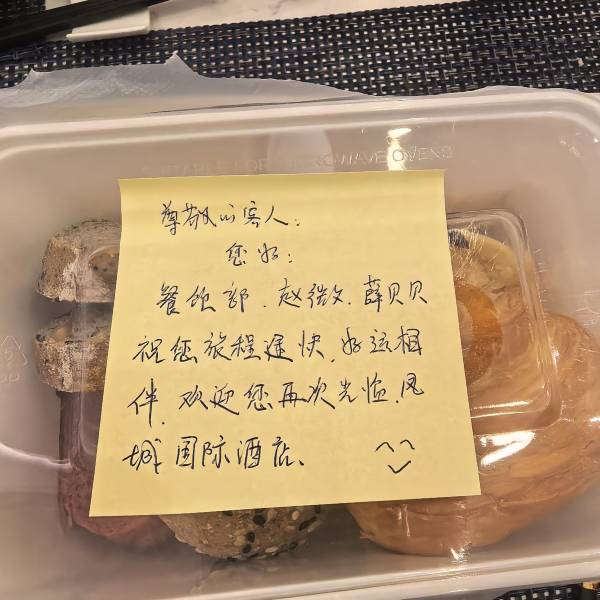 MICROWAVE OVENS
尊敬的客人:
您好:
餐饮部、赵微、薛贝贝
祝您旅程逞快、好运相
伴、欢迎您再次光临、凤
城国际酒店、